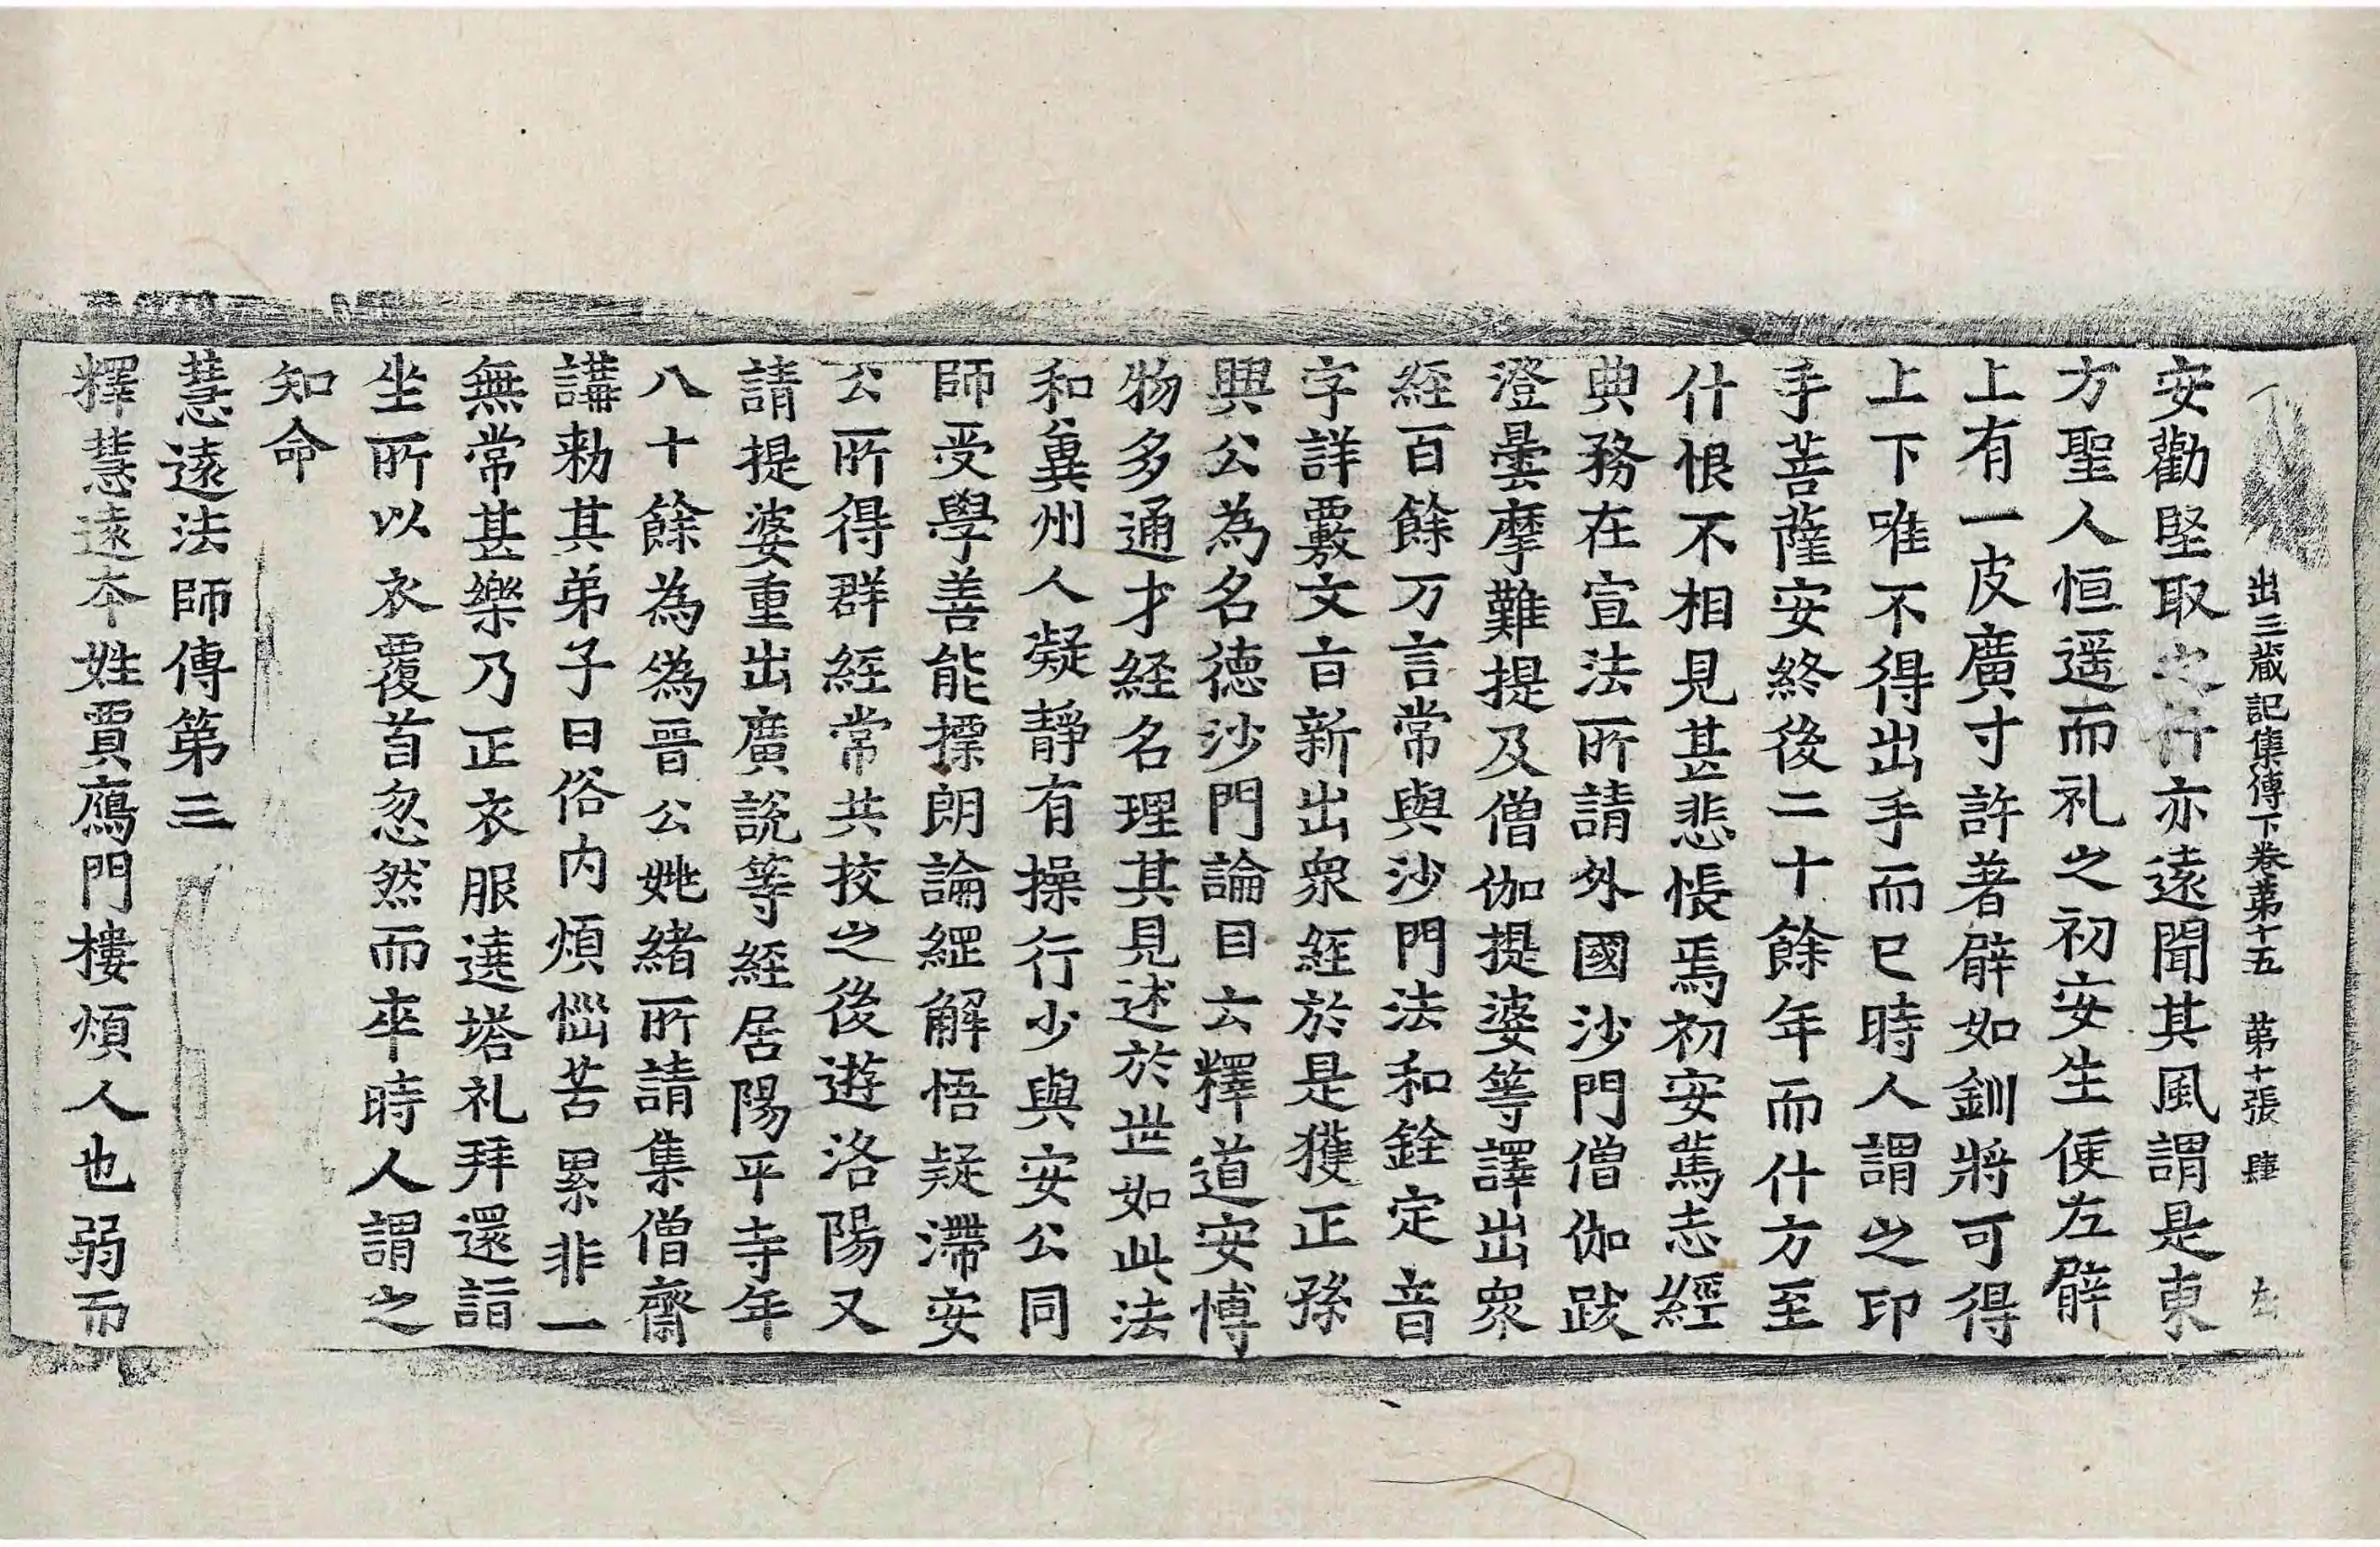 出三藏記集傳下卷苐十五　苐十張　肆
安勸堅取之什亦遠聞其風謂是東
方聖人恒遥而礼之初安生便左臂
上有一皮廣寸許著臂如釧將可得
上下唯不得出手而已時人謂之印
手菩薩安終後二十餘年而什方至
什恨不相見甚悲悵焉初安篤志經
典務在宣法所請外國沙門僧伽跋
澄曇摩難提及僧伽提婆等譯出衆
經百餘万言常與沙門法和銓定音
字詳覈文旨新出衆經於是獲正孫
興公為名德沙門論目云釋道安博
物多通才経名理其見述於世如此法
和兾州人凝靜有操行少與安公同
師受學善能摽朗論綱解悟疑滯安
公所得群經常共挍之後遊洛陽又
請提婆重出廣說等經居陽平寺年
八十餘為偽晉公姚緒所請集僧齋
講勑其弟子曰俗内煩惱苦累非一
無常甚樂乃正衣服遶塔礼拜還詣
坐所以衣覆首忽然而卒時人謂之
知命
慧遠法師傳第三
釋慧遠本姓賈鴈門樓煩人也弱而